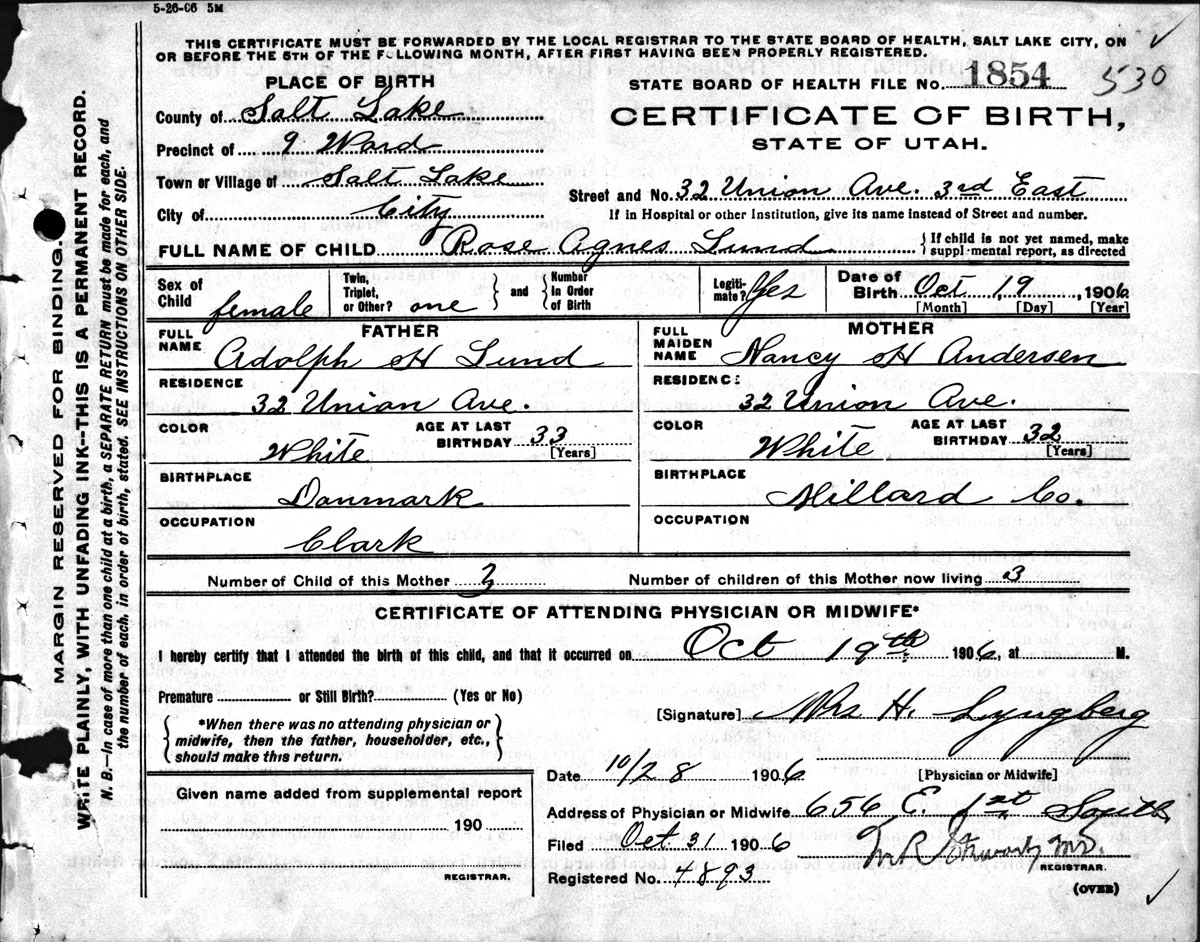 5-26-06 5M
THIS CERTIFICATE MUST BE FORWARDED BY THE LOCAL REGISTRAR TO THE STATE BOARD OF HEALTH, SALT LAKE CITY, ON
OR BEFORE THE 5TH OF THE FOLLOWING MONTH, AFTER FIRST HAVING BEEN PROPERLY REGISTERED.
PLACE OF BIRTH
STATE BOARD OF HEALTH FILE No. 1854 530
County of Salt Lake
CERTIFICATE OF BIRTH,
STATE OF UTAH.
Precinct of 9 Ward
Town or Village of Salt Lake
Street and No. 32 Union Ave. 3rd East
City of City
If in Hospital or other Institution, give its name instead of Street and number.
FULL NAME OF CHILD Rose Agnes Lund
If child is not yet named, make
supplemental report, as directed
Sex of Child female
Twin, Triplet, or Other? one
and
Number In Order of Birth
Legiti-mate? Yes
Date of Birth Oct 19, 1906
[Month] [Day] [Year]
FATHER
FULL NAME Adolph H Lund
RESIDENCE
32 Union Ave.
COLOR White
AGE AT LAST BIRTHDAY 33
[Years]
BIRTHPLACE
Danmark
OCCUPATION
Clark
MOTHER
FULL MAIDEN NAME Nancy H Andersen
RESIDENCE
32 Union Ave.
COLOR White
AGE AT LAST BIRTHDAY 32
[Years]
BIRTHPLACE
Millard Co.
OCCUPATION
Number of Child of this Mother 3
Number of children of this Mother now living 3
CERTIFICATE OF ATTENDING PHYSICIAN OR MIDWIFE*
I hereby certify that I attended the birth of this child, and that it occurred on Oct 19th 1906, at M.
Premature or Still Birth? (Yes or No)
*When there was no attending physician or
midwife, then the father, householder, etc.,
should make this return.
[Signature] Mrs H. Lyngberg
Date 10/28 1906
[Physician or Midwife]
Given name added from supplemental report
190
REGISTRAR.
Address of Physician or Midwife 656 E. 1st South
Filed Oct 31 1906
REGISTRAR.
Registered No. 4893
(OVER)
MARGIN RESERVED FOR BINDING.
WRITE PLAINLY, WITH UNFADING INK--THIS IS A PERMANENT RECORD.
N. B.—In case of more than one child at a birth, a SEPARATE RETURN must be made for each, and
the number of each, in order of birth, stated. SEE INSTRUCTIONS ON OTHER SIDE.